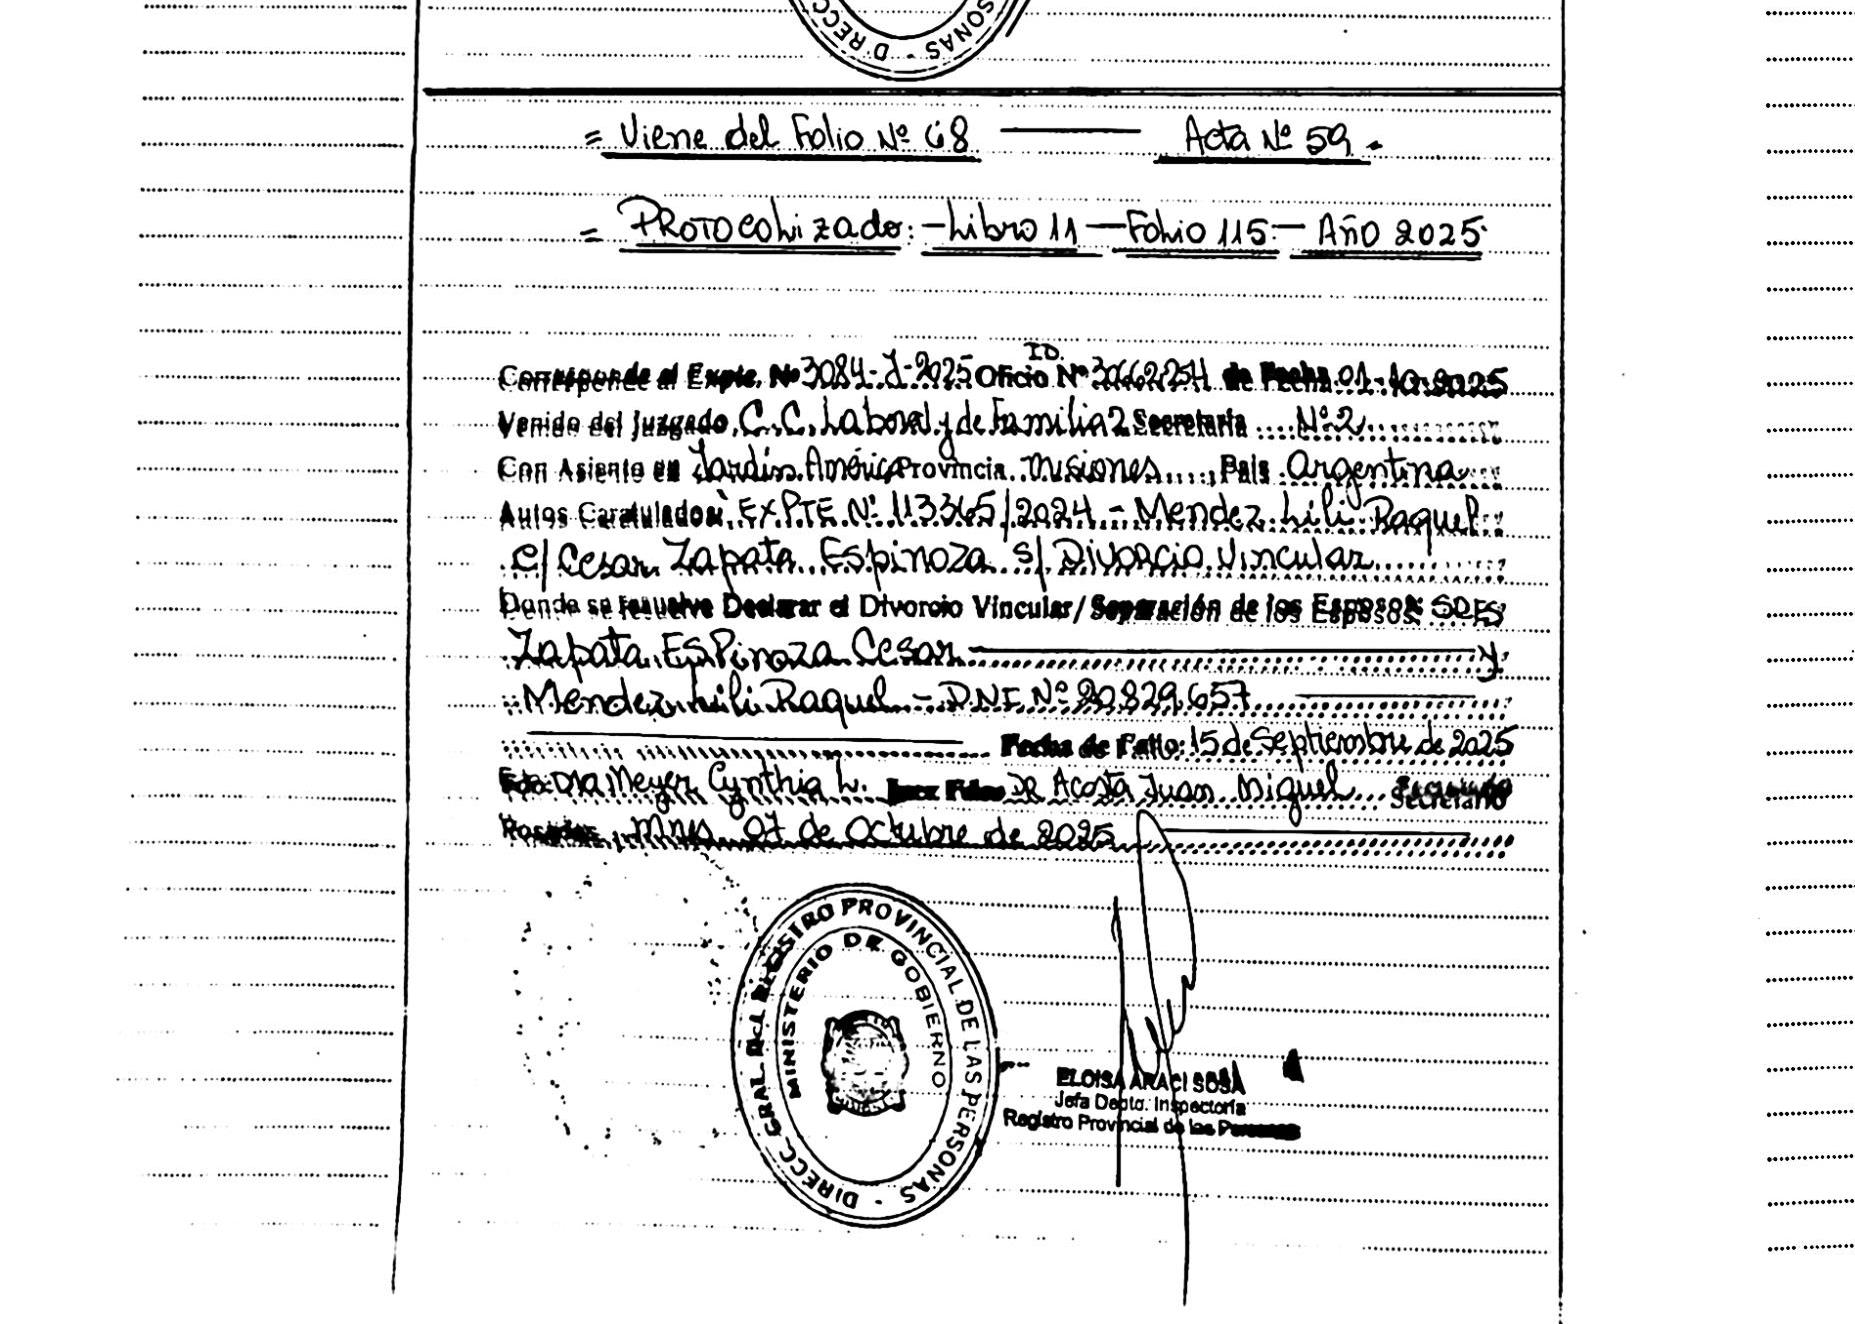 DIRECC SONAS -
= Viene del Folio Nº 68 — Acta Nº 59.-
= PROTOCOLIZADO: - Libro 11 — Folio 115 — Año 2025.
ID.
Corresponde al Expte. Nº 3084-J-2025 Oficio Nº 30662254 de Fecha 01-10-2025
Venido del Juzgado C.C. Laboral y de Familia 2 Secretaría Nº 2
Con Asiento en Jardín América Provincia Misiones País Argentina
Autos Caratulados: EXPTE Nº 113365/2024 - Mendez Lili Raquel
C/ Cesar Zapata Espinoza S/ Divorcio Vincular
Donde se resuelve Declarar el Divorcio Vincular/Separación de los Esposos: SRES
Zapata Espinoza Cesar — y
Mendez Lili Raquel - DNI Nº 20.829.657
Fecha de Fallo: 15 de Septiembre de 2025
Fdo: Dra Meyer Cynthia L. Juez Fdo: DR Acosta Juan Miguel Secretario
Posadas, Mnes 07 de Octubre de 2025
DIRECC. GRAL. DEL REGISTRO PROVINCIAL DE LAS PERSONAS -
MINISTERIO DE GOBIERNO
ELOISA ARACI SOSA
Jefa Depto. Inspectoría
Registro Provincial de las Personas